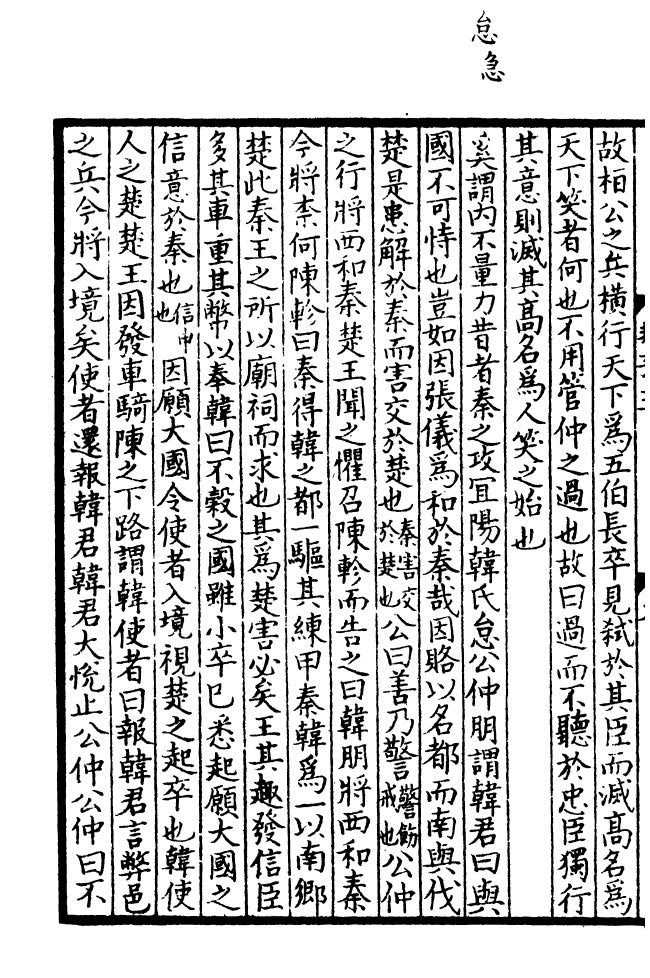 怠急
故栢公之兵橫行天下爲五伯長卒見弑於其臣而滅髙名爲
天下笑者何也不用管仲之過也故曰過而不聽於忠臣獨行
其意則滅其髙名爲人笑之始也
奚謂内不量力昔者秦之攻冝陽韓氏怠公仲朋謂韓君曰與
國不可恃也豈如因張儀爲和於秦哉因賂以名都而南與伐
楚是患解於秦而害交於楚也秦害交於楚也公曰善乃警警飭戒也公仲
之行將西和秦楚王聞之懼召陳軫而告之曰韓朋將西和秦
今將柰何陳軫曰秦得韓之都一驅其練甲秦韓爲一以南鄉
楚此秦王之所以廟祠而求也其爲楚害必矣王其趣發信臣
多其車重其幣以奉韓曰不穀之國雖小卒已悉起願大國之
信意於秦也信申也因願大國令使者入境視楚之起卒也韓使
人之楚楚王因發車騎陳之下路謂韓使者曰報韓君言弊邑
之兵今將入境矣使者還報韓君韓君大恱止公仲公仲曰不